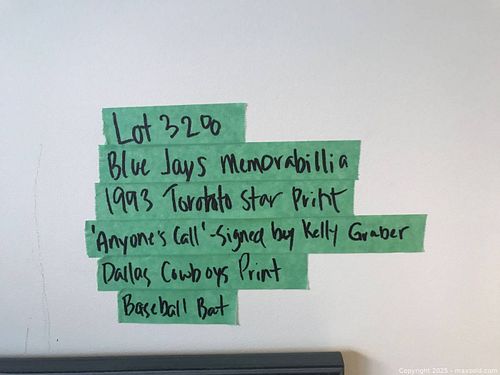 Lot 3200
Blue Jays Memorabillia
1993 Torototo Star Print
'Anyone's Call' - Signed by Kelly Graber
Dallas Cowboys Print
Baseball Bat
Copyright 2025 - maxsold.com